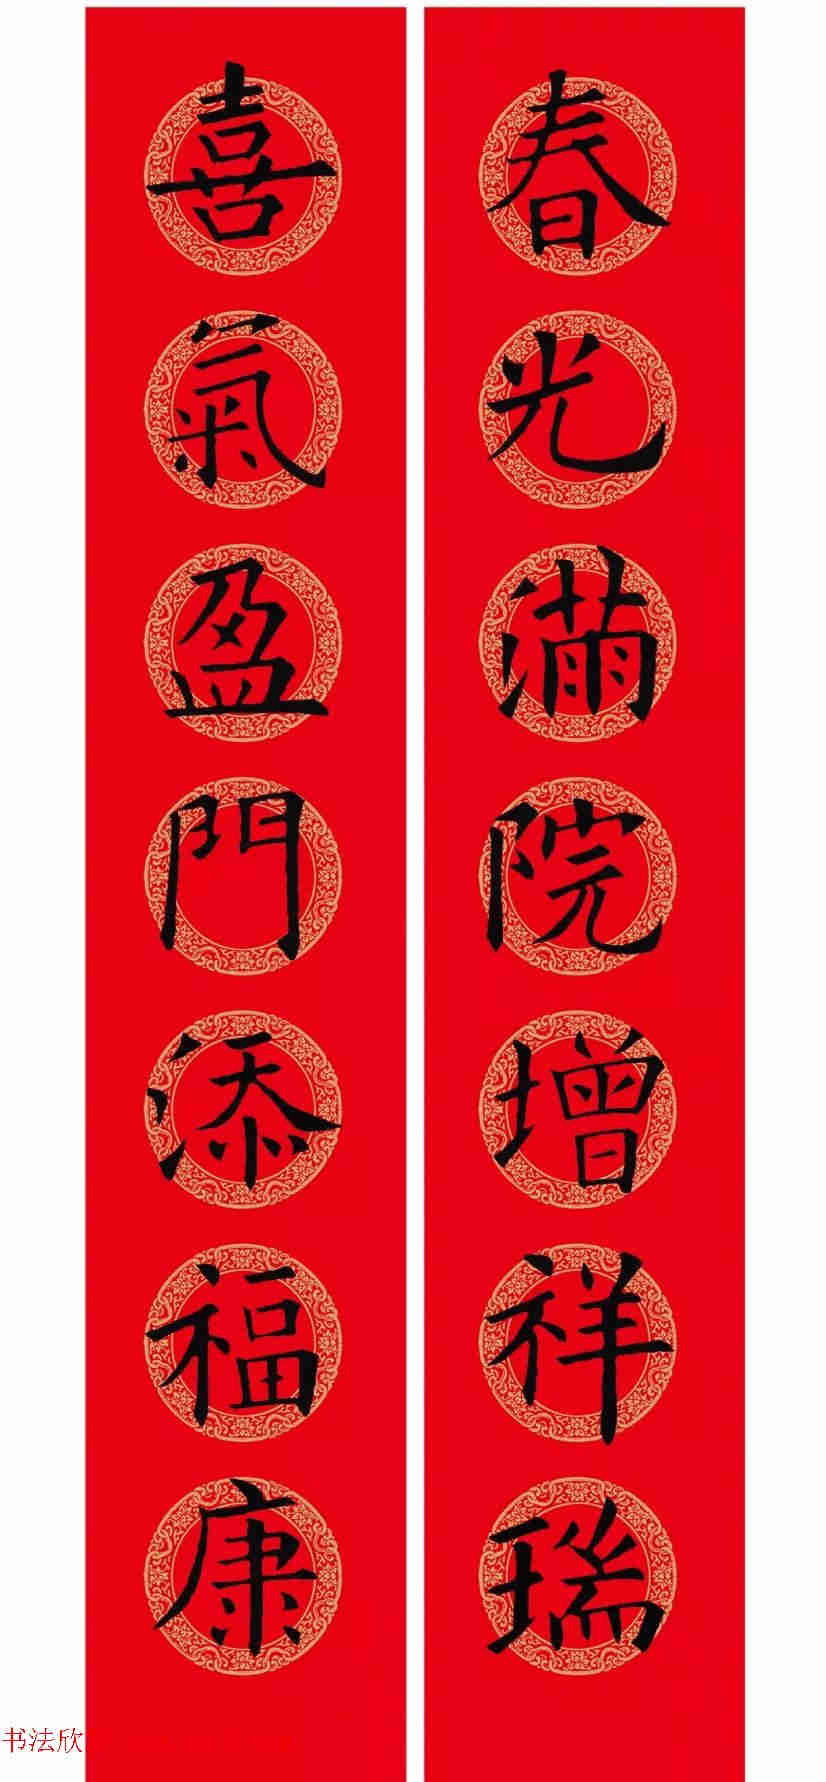 春光滿院增祥瑞
喜氣盈門添福康
书法欣